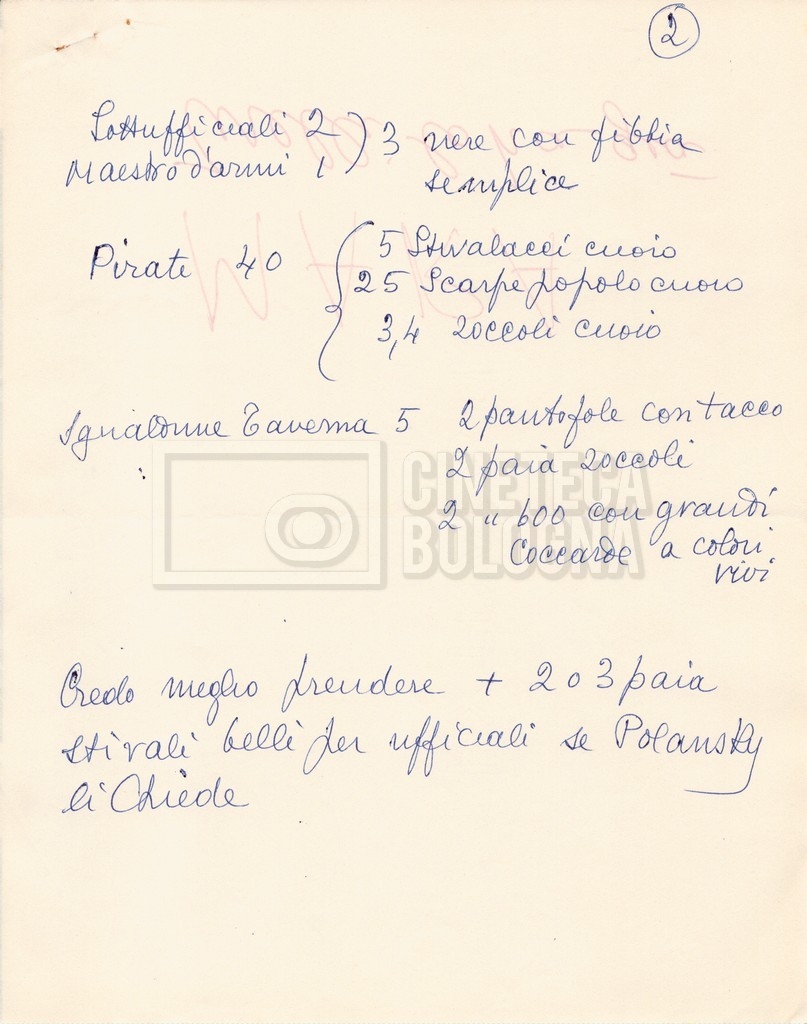 2
Sottufficiali 2 ) 3 nere con fibbia
Maestro d'armi 1 semplice
Pirate 40 { 5 Stivalacci cuoio
25 Scarpe popolo cuoio
3,4 zoccoli cuoio
Sgualdrine Taverna 5 2 pantofole con tacco
2 paia zoccoli
2 " 600 con grandi
Coccarde a colori
vivi
CINETECA
BOLOGNA
Credo meglio prendere + 2 o 3 paia
stivali belli per ufficiali se Polansky
li Chiede